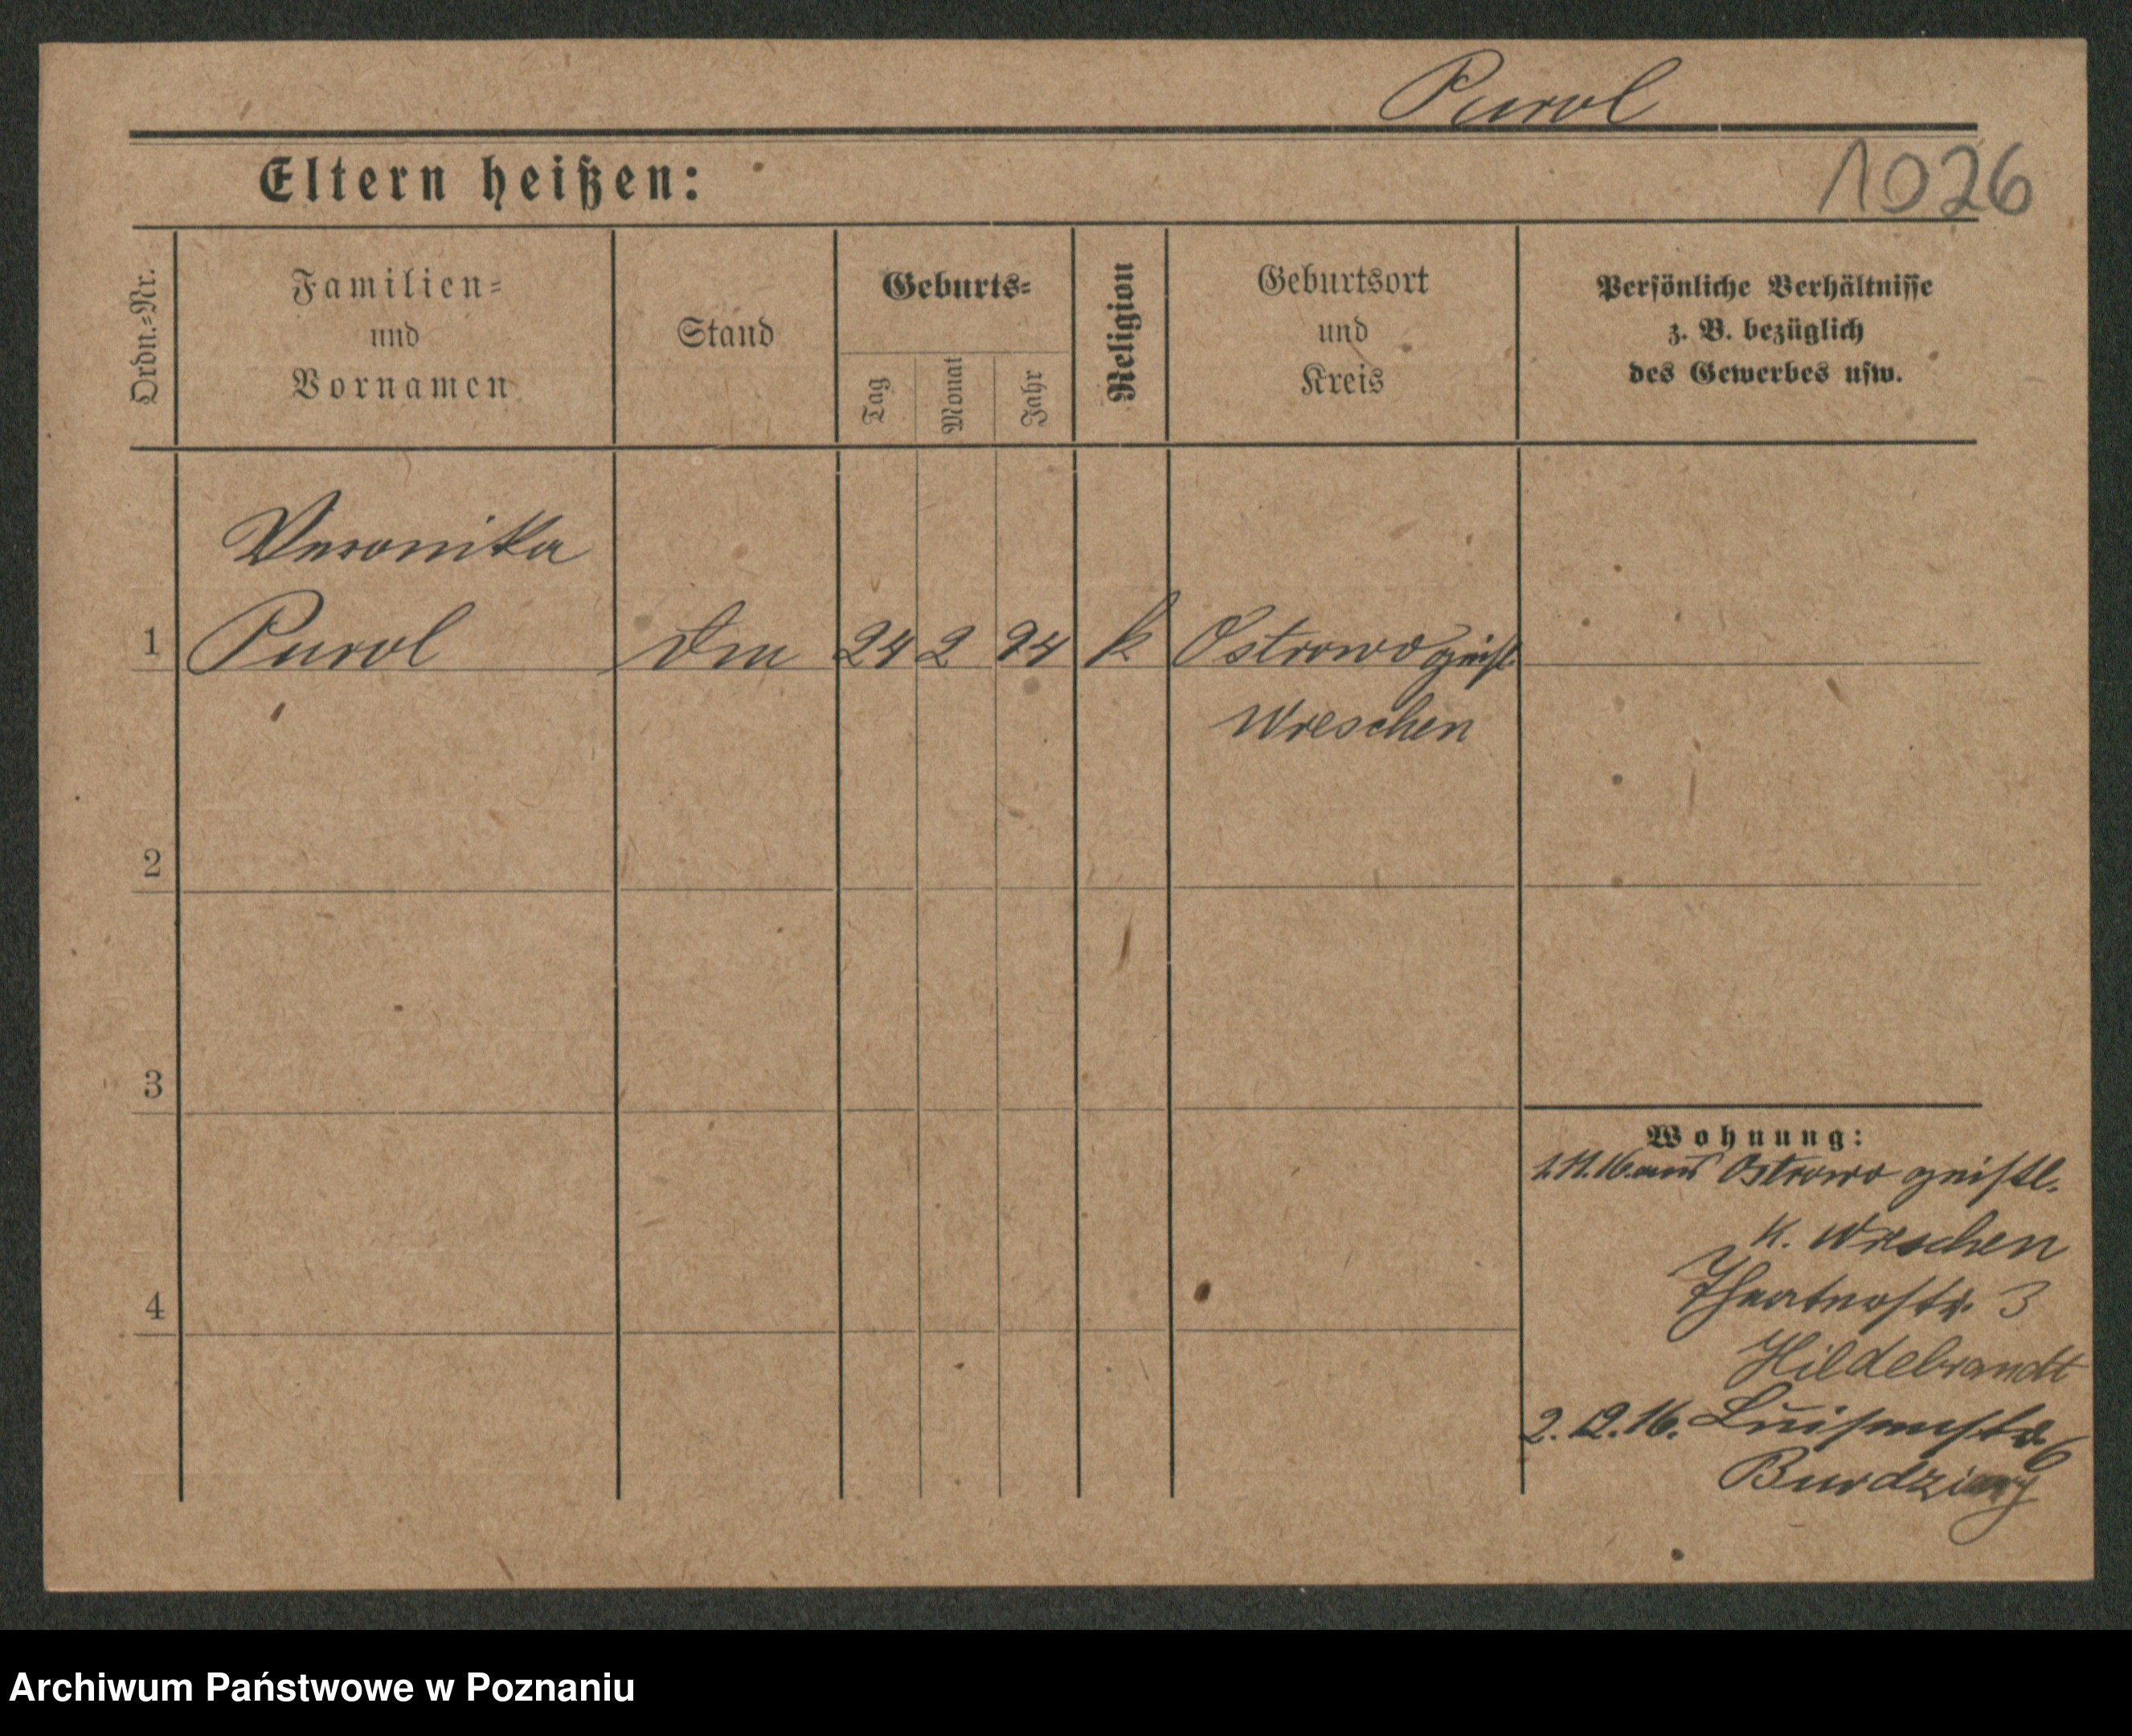 Purol
Eltern heißen:
1026
Ordn.=Nr.
Familien=
und
Vornamen
Stand
Geburts=
Tag
Monat
Jahr
Religion
Geburtsort
und
Kreis
Persönliche Verhältnisse
z. B. bezüglich
des Gewerbes usw.
Veronika
1 Purol Dm 24 2 94 k Ostrowo geistl.
Wreschen
2
3
4
Wohnung:
1.11.16. aus Ostrowo geistl.
K. Wreschen
Theaterstr. 3
Hildebrandt
2.12.16. Luisenstr. 6
Archiwum Państwowe w Poznaniu